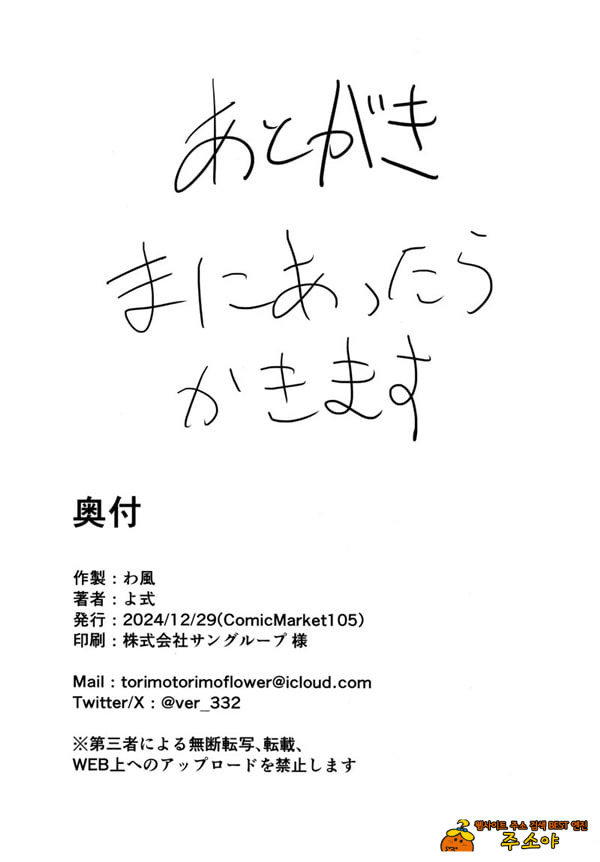 あとがき
まにあったら
かきます
奥付
作製：わ風
著者：よ式
発行：2024/12/29(ComicMarket105)
印刷：株式会社サングループ 様
Mail：torimotorimoflower@icloud.com
Twitter/X：@ver_332
※第三者による無断転写、転載、
WEB上へのアップロードを禁止します
웹사이트 주소 검색 BEST 엔진
주소야